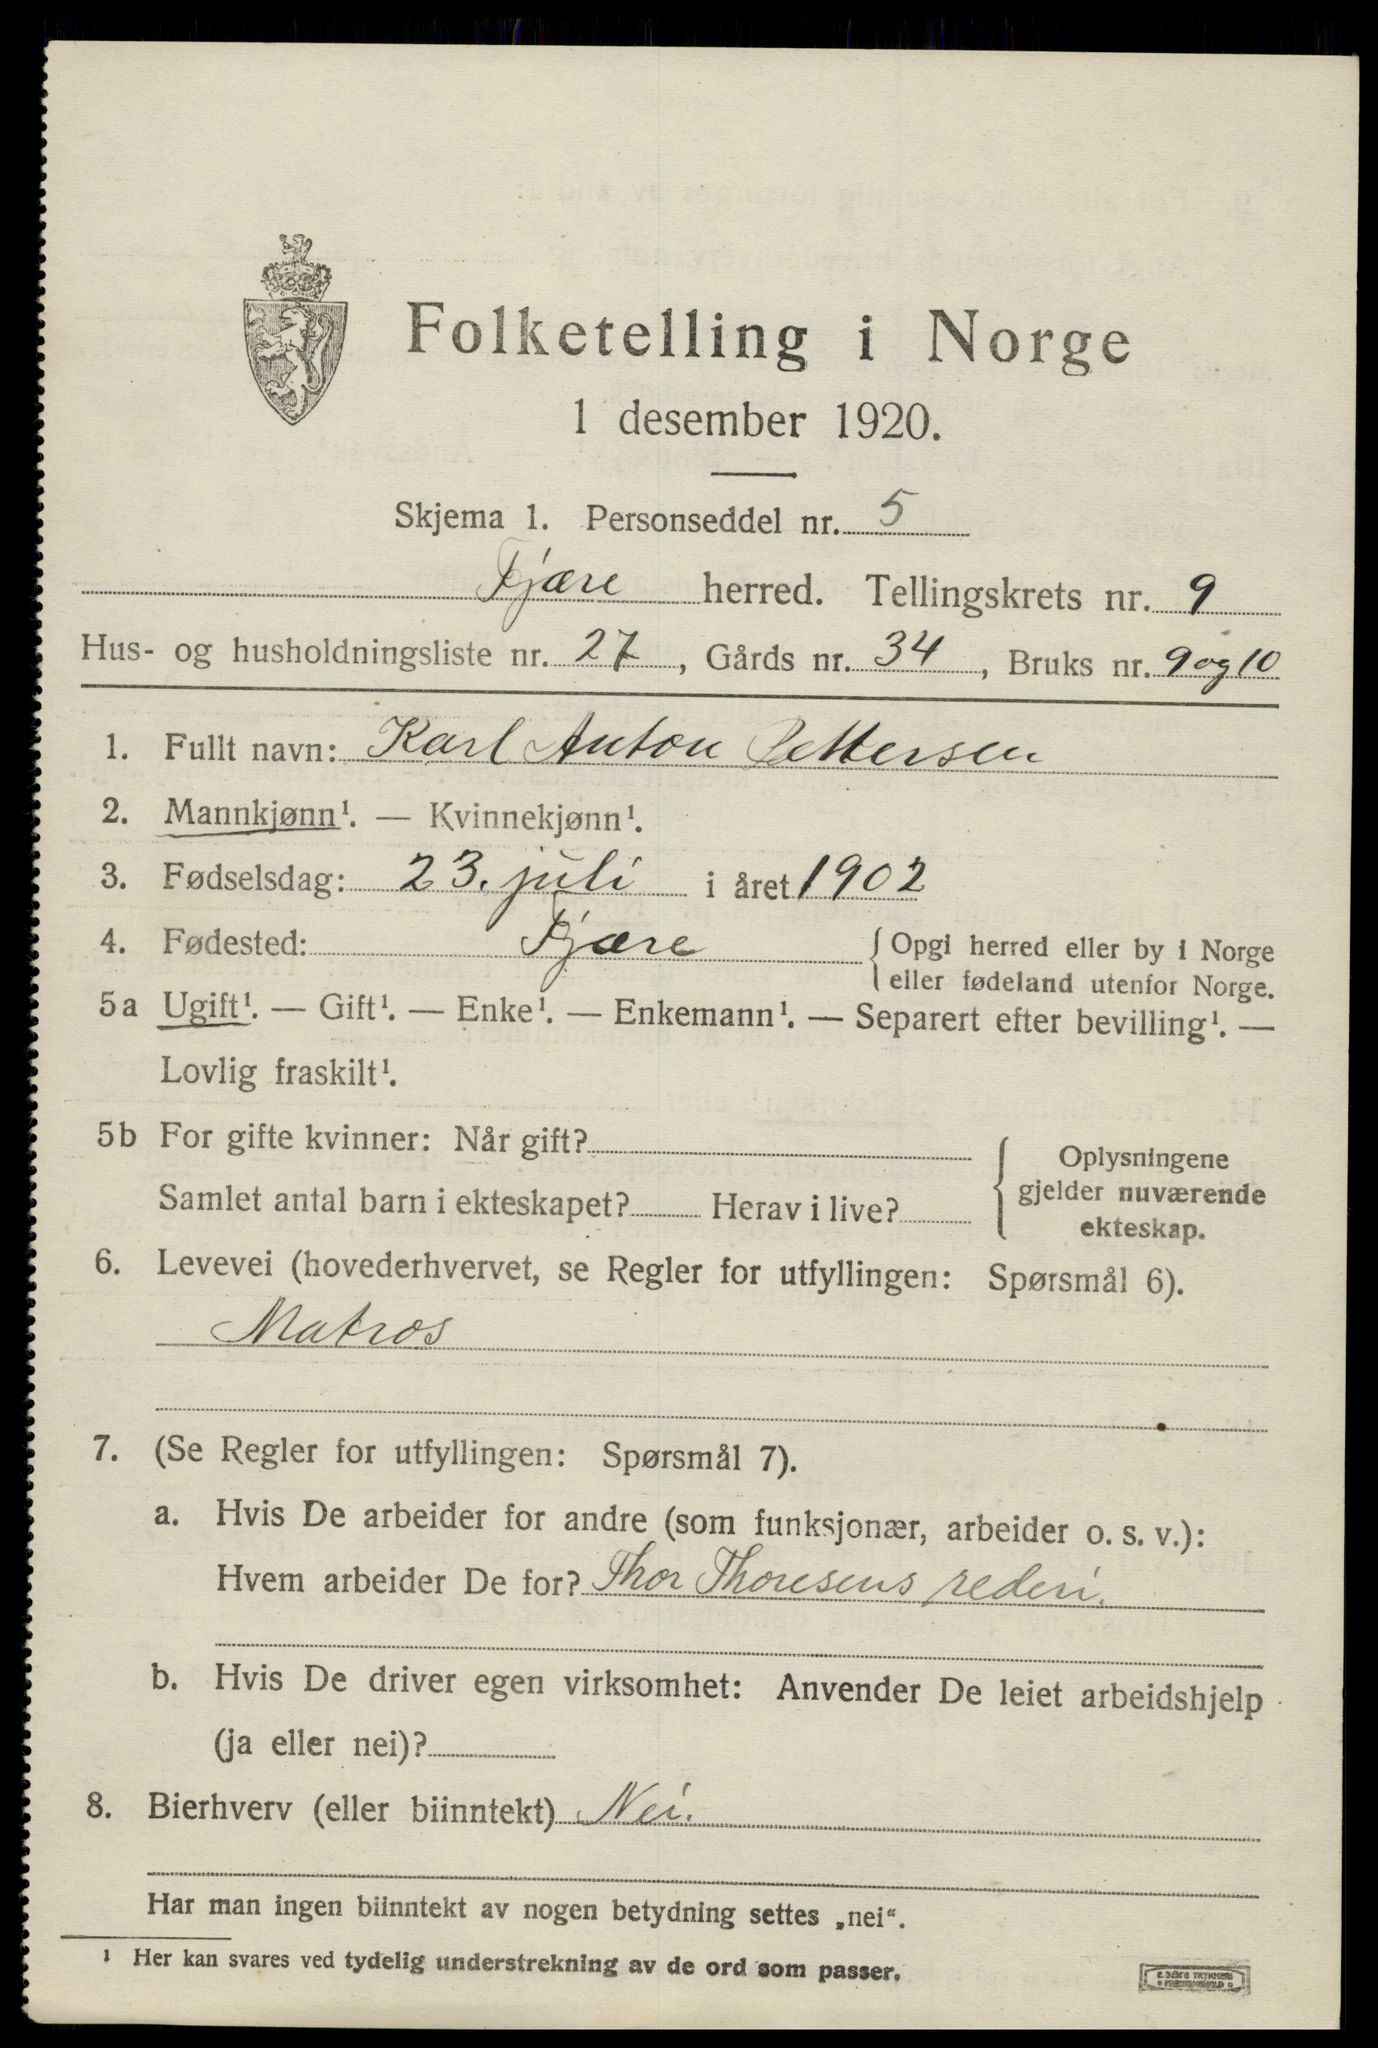 Folketelling i Norge
1 desember 1920.
Skjema 1. Personseddel nr. 5
Fjære herred. Tellingskrets nr. 9
Hus- og husholdningsliste nr. 27, Gårds nr. 34, Bruks nr. 9 og 10
1. Fullt navn: Karl Anton Pettersen
2. Mannkjønn¹. — Kvinnekjønn¹.
3. Fødselsdag: 23. juli i året 1902
4. Fødested: Fjære { Opgi herred eller by i Norge
eller fødeland utenfor Norge.
5a Ugift¹. — Gift¹. — Enke¹. — Enkemann¹. — Separert efter bevilling¹. —
Lovlig fraskilt¹.
5b For gifte kvinner: Når gift?
Samlet antal barn i ekteskapet? Herav i live?
{ Oplysningene
gjelder nuværende
ekteskap.
6. Levevei (hovederhvervet, se Regler for utfyllingen: Spørsmål 6).
Matros
7. (Se Regler for utfyllingen: Spørsmål 7).
a. Hvis De arbeider for andre (som funksjonær, arbeider o. s. v.):
Hvem arbeider De for? Thor Thoresens rederi.
b. Hvis De driver egen virksomhet: Anvender De leiet arbeidshjelp
(ja eller nei)?
8. Bierhverv (eller biinntekt) Nei.
Har man ingen biinntekt av nogen betydning settes „nei“.
¹ Her kan svares ved tydelig understrekning av de ord som passer.